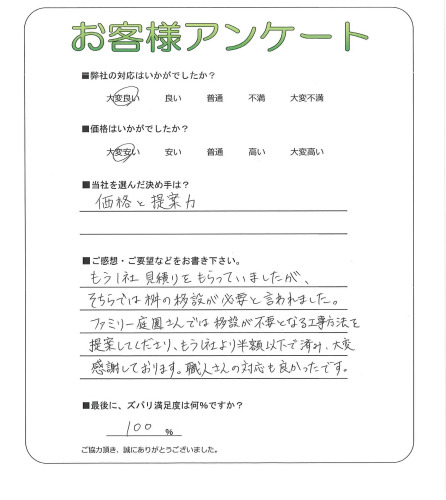 お客様アンケート
■弊社の対応はいかがでしたか？
大変良い 良い 普通 不満 大変不満
■価格はいかがでしたか？
大変安い 安い 普通 高い 大変高い
■当社を選んだ決め手は？
価格と提案力
■ご感想・ご要望などをお書き下さい。
もう1社見積りをもらっていましたが、
そちらでは桝の移設が必要と言われました。
ファミリー庭園さんでは移設が不要となる工事方法を
提案してくださり、もう1社より半額以下で済み、大変
感謝しております。職人さんの対応も良かったです。
■最後に、ズバリ満足度は何%ですか？
100 %
ご協力頂き、誠にありがとうございました。